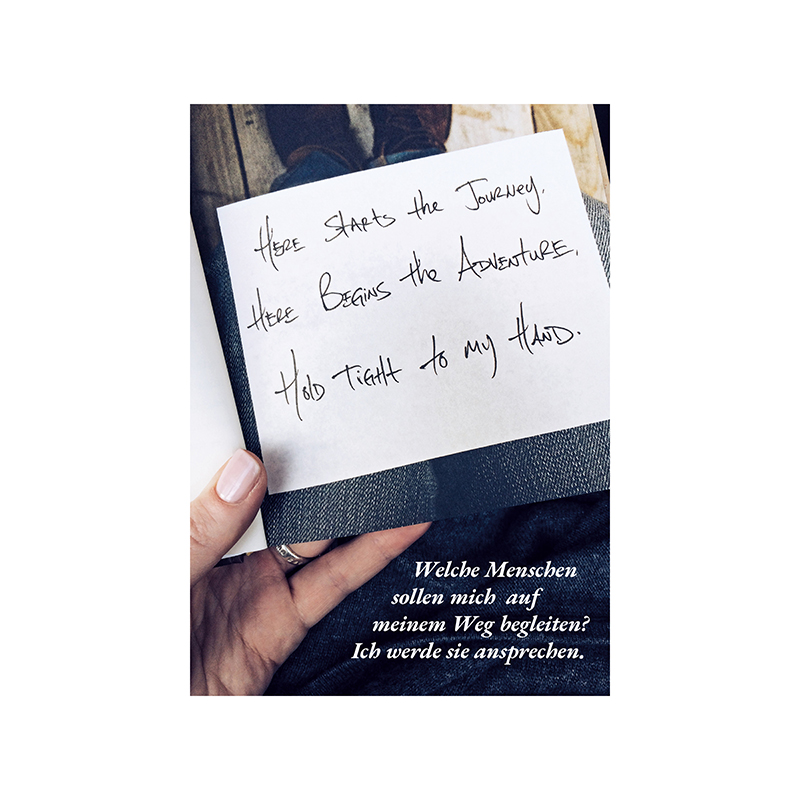 Here Starts the Journey.
Here Begins the Adventure.
Hold Tight to my Hand.
Welche Menschen
sollen mich auf
meinem Weg begleiten?
Ich werde sie ansprechen.